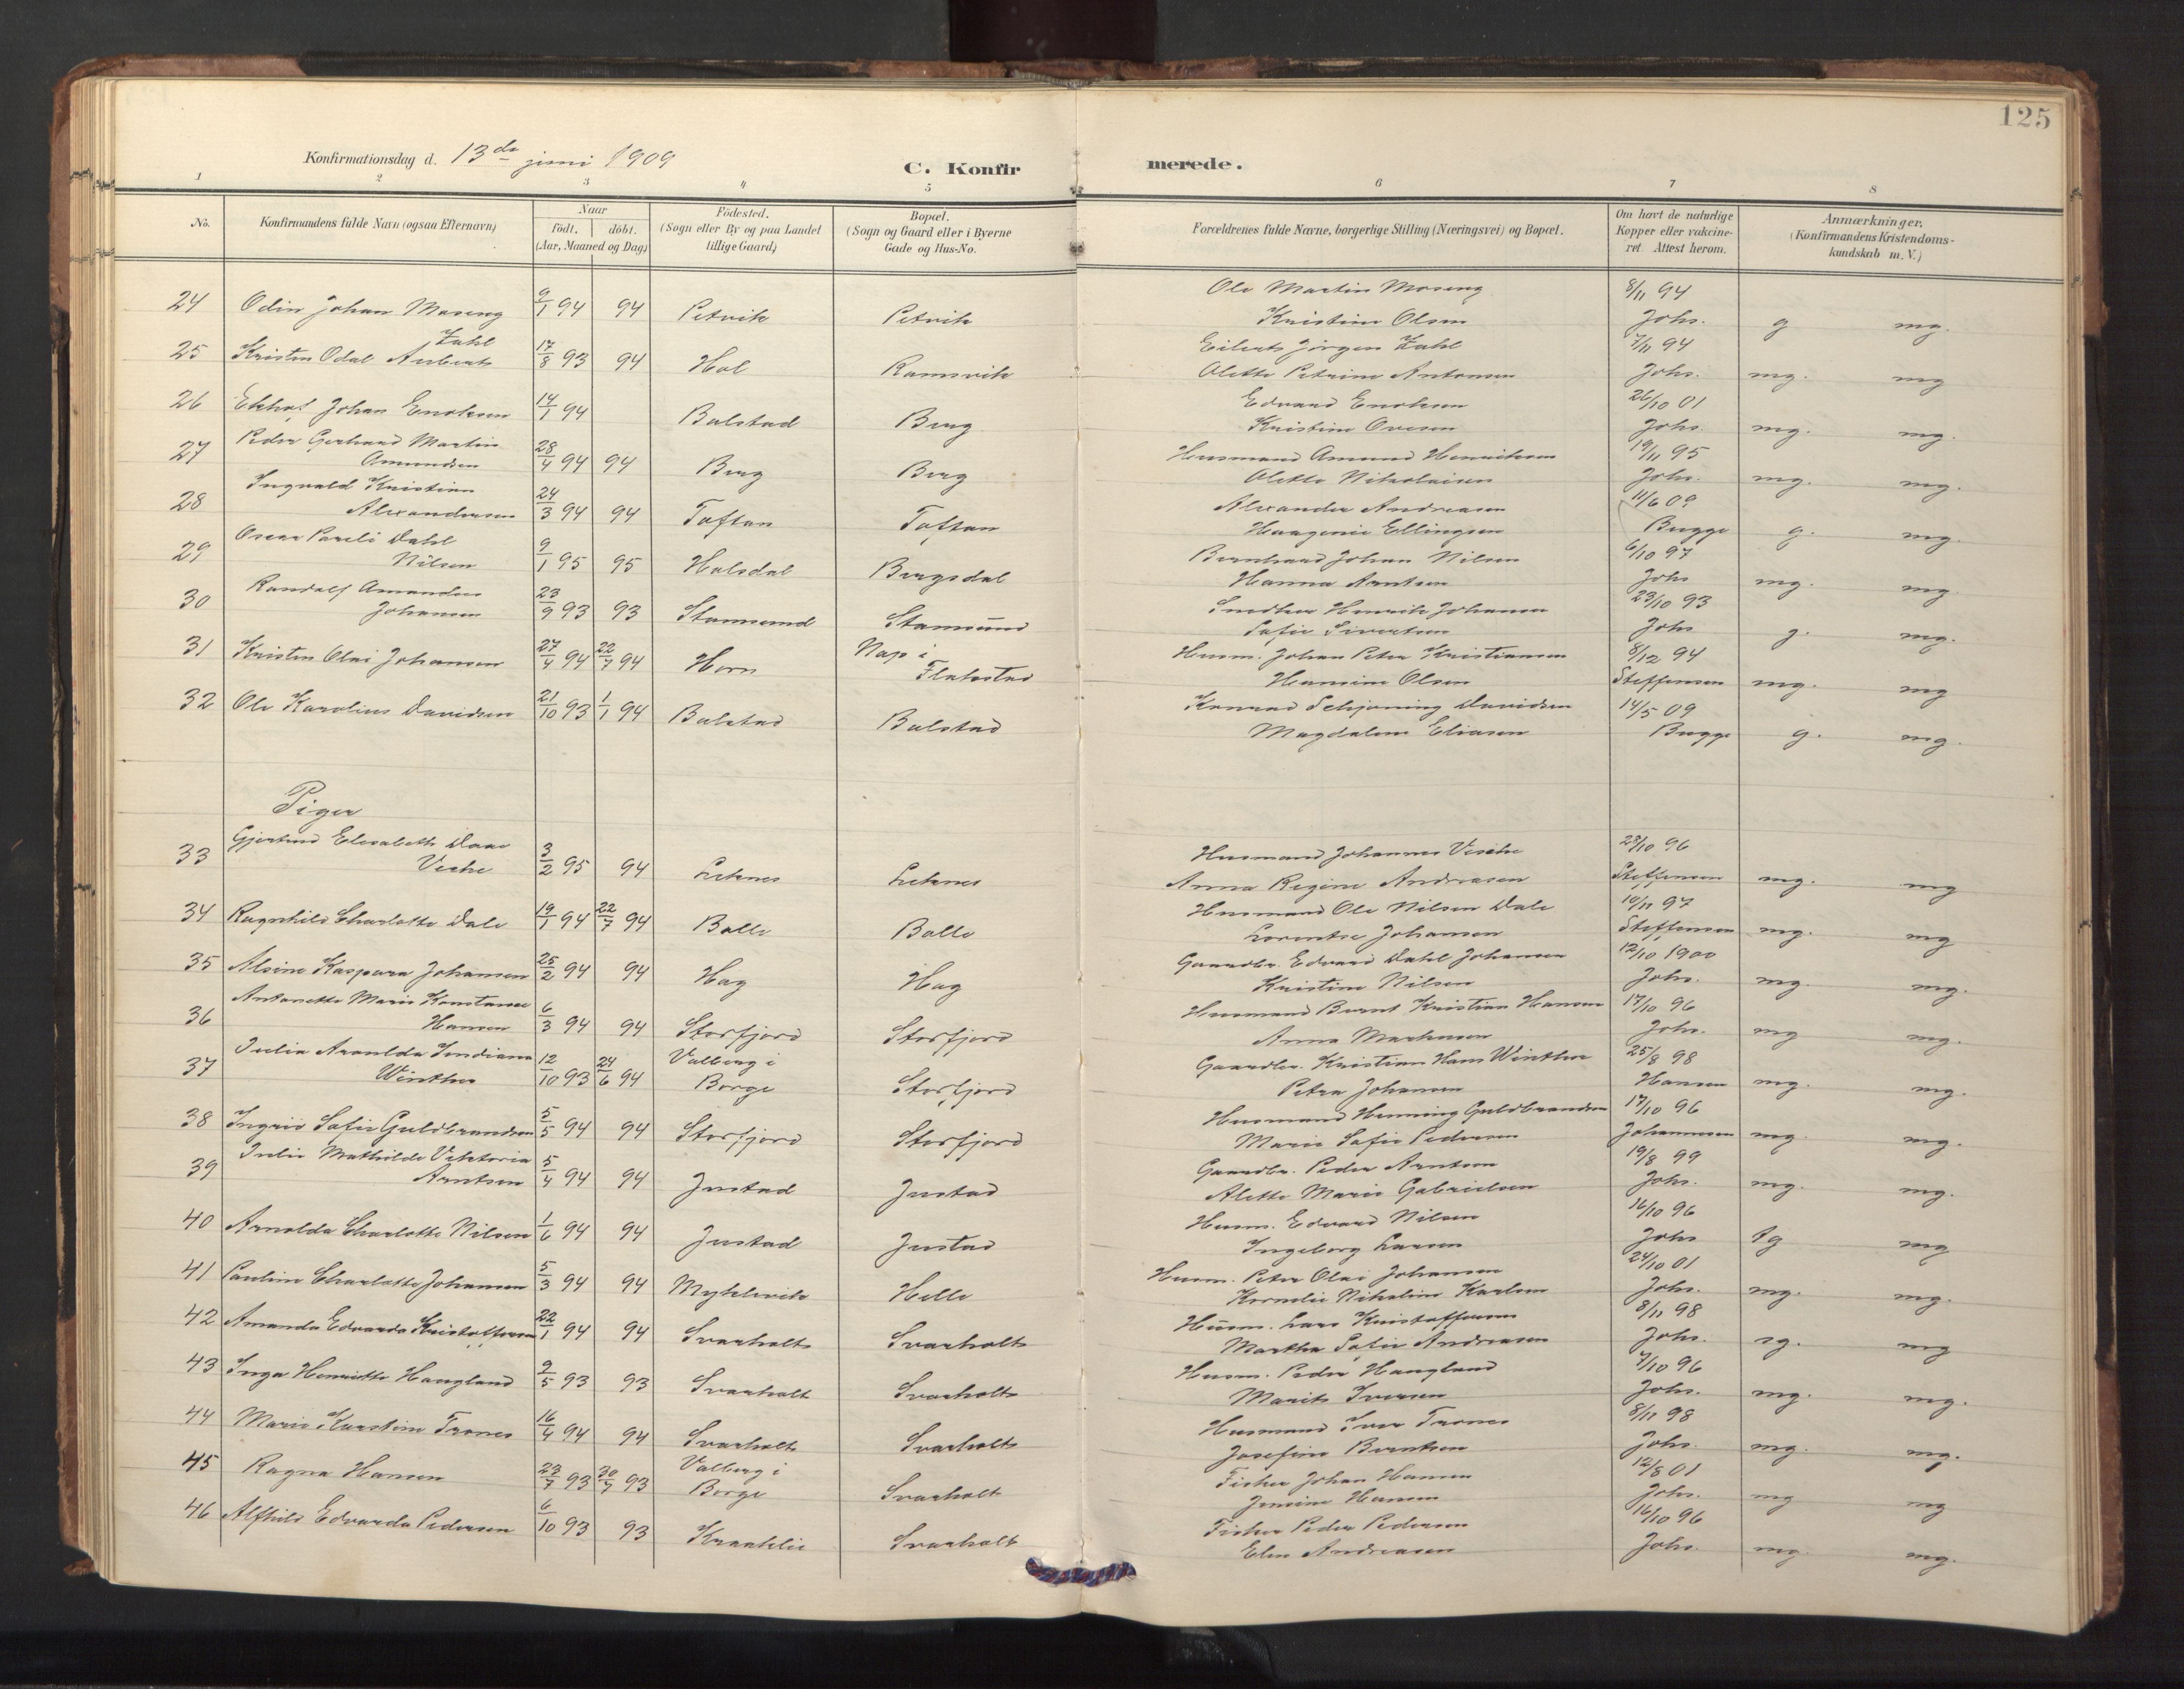 125
Konfirmationsdag d. 13de juni 1909
C. Konfirmerede.
1 2 3 4 5 6 7 8
No.
Konfirmandens fulde Navn (ogsaa Efternavn)
Naar
født. døbt.
(Aar, Maaned og Dag)
Fødested.
(Sogn eller By og paa Landet
tillige Gaard)
Bopæl.
(Sogn og Gaard eller i Byerne
Gade og Hus-No.
Forældrenes fulde Navne, borgerlige Stilling (Næringsvei) og Bopæl.
Om havt de naturlige
Kopper eller vakcine-
ret Attest herom.
Anmærkninger.
(Konfirmandens Kristendoms-
kundskab m. V.)
24 Odin Johan Moseng 9/1 94 94 Petvik Petvik Ole Martin Moseng 8/11 94
Kristine Olsen Johs. g mg.
Zahl
25 Kristen Odal Anberts 17/8 93 94 Hol Ramsvik Eilerts Jørgen Zahl 7/11 94
Olette Petrine Antonsen Johs. mg. mg
26 Johan Enoksen 14/1 94 Balstad Berg Edvard Enoksen 26/10 01
Kristine Ovesen Johs. mg. mg.
27 Peder Gerhard Martin
Amundsen 28/4 94 94 Berg Berg Husmand Amund Henriksen 19/11 95
Olette Nikolaisen Johs. mg. mg.
28 Ingvald Kristian
Alexandersen 24/3 94 94 Toftan Toftan Alexander Andreasen 11/6 09
Haagenie Ellingsen Bugge g. mg.
29 Oscar Pareli Dahl
Nilsen 9/1 95 95 Holsdal Bergsdal Bernhard Johan Nilsen 6/10 97
Hanna Arntsen Johs mg. mg.
30 Randolf Amandus
Johansen 23/9 93 93 Stamsund Stamsund Snedker Henrik Johansen 23/10 93
Sofie Sivertsen Johs g. mg.
31 Kristen Olai Johansen 27/4 94 22/7 94 Horn Nap i
Flakstad Husm. Johan Peter Kristiansen 8/12 94
Hansine Olsen Steffensen mg. mg
32 Ole Karolius Davidsen 21/10 93 1/1 94 Balstad Balstad Konrad Schjøning Davidsen 14/5 09
Magdalene Eliasen Bugge g. mg.
Piger
33 Gjertrud Elisabeth Daae
Veche 3/2 95 94 Leknes Leknes Husmand Johannes Veche 23/10 96
Anna Regine Andreasen Steffensen mg. mg
34 Ragnhild Charlotte Dale 19/1 94 22/7 94 Balle Balle Husmand Ole Nilsen Dale 10/11 97
Lorentse Johansen Steffensen mg. mg
35 Alsine Kaspara Johansen 25/2 94 94 Hag Hag Gaardbr. Edvard Dahl Johansen 12/10 1900
Kristine Nilsen Johs. mg. mg.
36 Antonette Marie Konstanse
Hansen 6/3 94 94 Storfjord Storfjord Husmand Bernt Kristian Hansen 17/10 96
Anna Markusen Johs. mg mg.
37 Julia Arnulda Indiana
Winther 12/10 93 24/6 94 Valberg i
Borge Storfjord Gaardbr. Kristian Hans Winther 25/8 98
Petra Johansen Hansen mg. mg.
38 Ingrid Sofie Guldbrandsen 5/5 94 94 Storfjord Storfjord Husmand Henning Guldbrandsen 17/10 96
Marie Sofie Pedersen Johannesen mg. mg.
39 Julie Mathilde Viktoria
Arntsen 5/4 94 94 Justad Justad Gaardbr. Peder Arntsen 19/8 99
Alette Marie Gabrielsen Johs. mg. mg.
40 Arnolda Charlotte Nilsen 1/6 94 94 Justad Justad Husm. Edvard Nilsen 16/10 96
Ingeborg Larsen Johs tg mg
41 Pauline Charlotte Johansen 5/3 94 94 Myklevik Helle Husm. Peter Olai Johansen 24/10 01
Kornelie Nikoline Karlsen Johs. mg. mg.
42 Amanda Edvarda Kristoffersen 22/1 94 94 Svarholt Svarholt Husm. Lars Kristoffersen 8/11 98
Martha Sofie Andreasen Johs. sg. mg
43 Inga Henriette Haugland 9/5 93 93 Svarholt Svarholt Husm. Peder Haugland 7/10 96
Marit Iversen Johs. mg. mg.
44 Marie Kirstine Trones 16/4 94 94 Svarholt Svarholt Husmand Iver Trones 8/11 98
Josefine Berntsen Johs. mg. mg.
45 Ragna Hansen 23/7 93 30/7 93 Valberg i
Borge Svarholt Fisker Johan Hansen 12/8 01
Jensine Hansen Johs. mg mg
46 Alfhild Edvarda Pedersen 6/10 93 93 Kraaklie Svarholt Fisker Peder Pedersen 16/10 96
Elen Andreasen Johs. mg. mg.